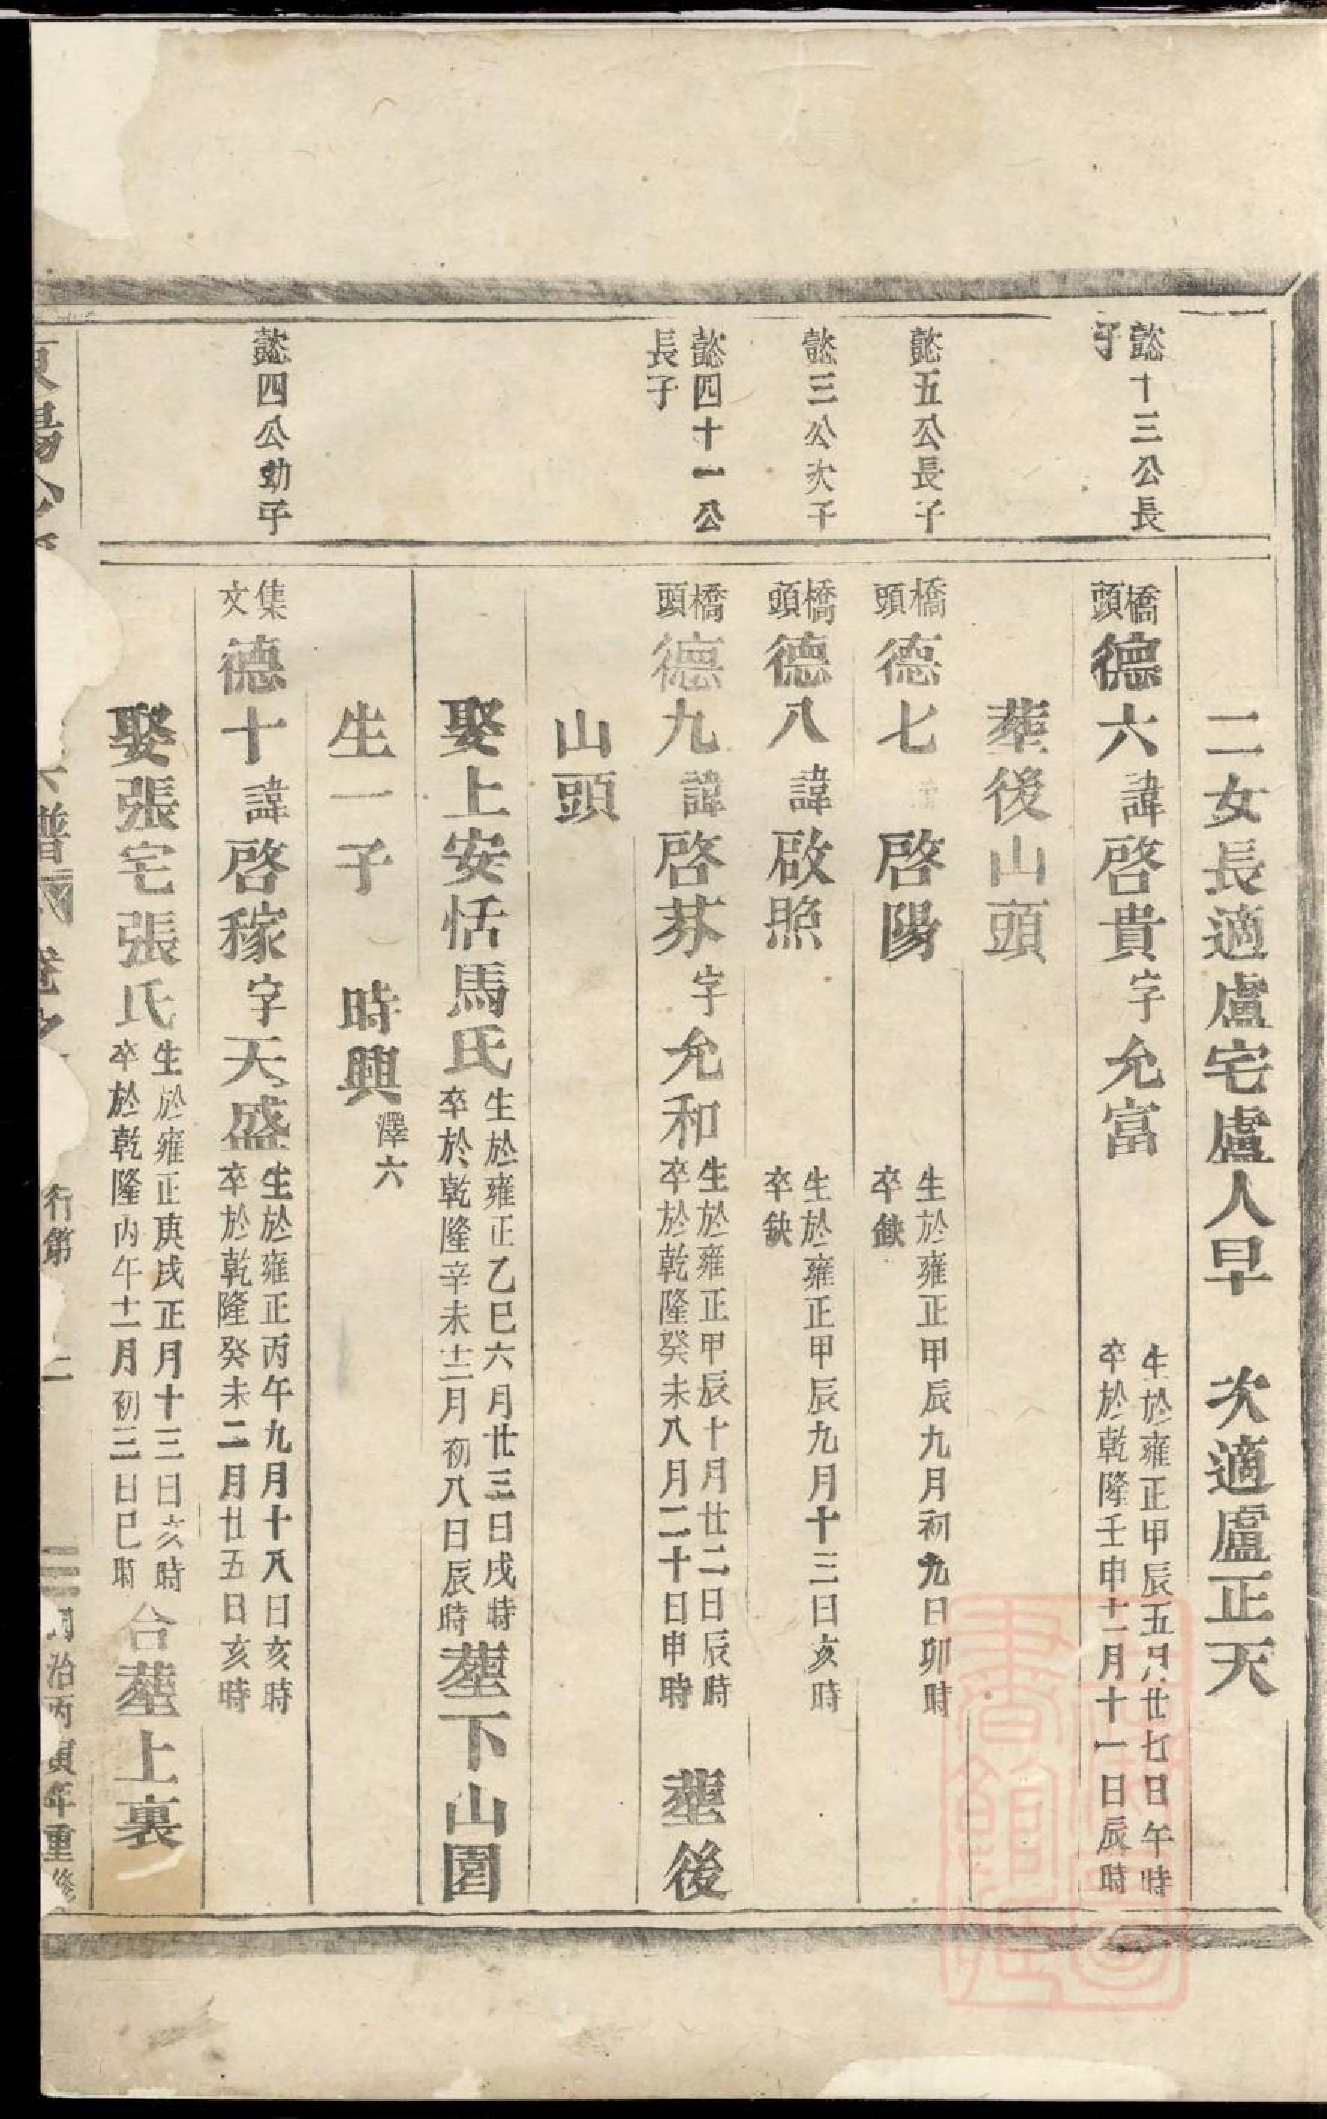 二女長適盧宅盧人早 次適盧正天
懿十三公長子
橋頭德六諱啓貴字允富 生於雍正甲辰五月廿七日午時 卒於乾隆壬申十一月十一日辰時
葬後山頭
懿五公長子
橋頭德七 啓陽 生於雍正甲辰九月初九日卯時 卒缺
懿三公次子
橋頭德八諱啟照 生於雍正甲辰九月十三日亥時 卒缺
懿四十一公長子
橋頭德九諱啓芬字允和 生於雍正甲辰十月廿二日辰時 卒於乾隆癸未八月二十日申時 塟後
山頭
娶上安恬馬氏 生於雍正乙巳六月廿三日戌時 卒於乾隆辛未十二月初八日辰時 塟下山園
生一子 時興 澤六
懿四公幼子
集文德十諱啓稼字天盛 生於雍正丙午九月十八日亥時 卒於乾隆癸未二月廿五日亥時
娶張宅張氏 生於雍正庚戌正月十三日亥時 卒於乾隆丙午十二月初三日巳時 合塟上裏
東陽 譜 卷之 行第 二 同治丙寅年重修